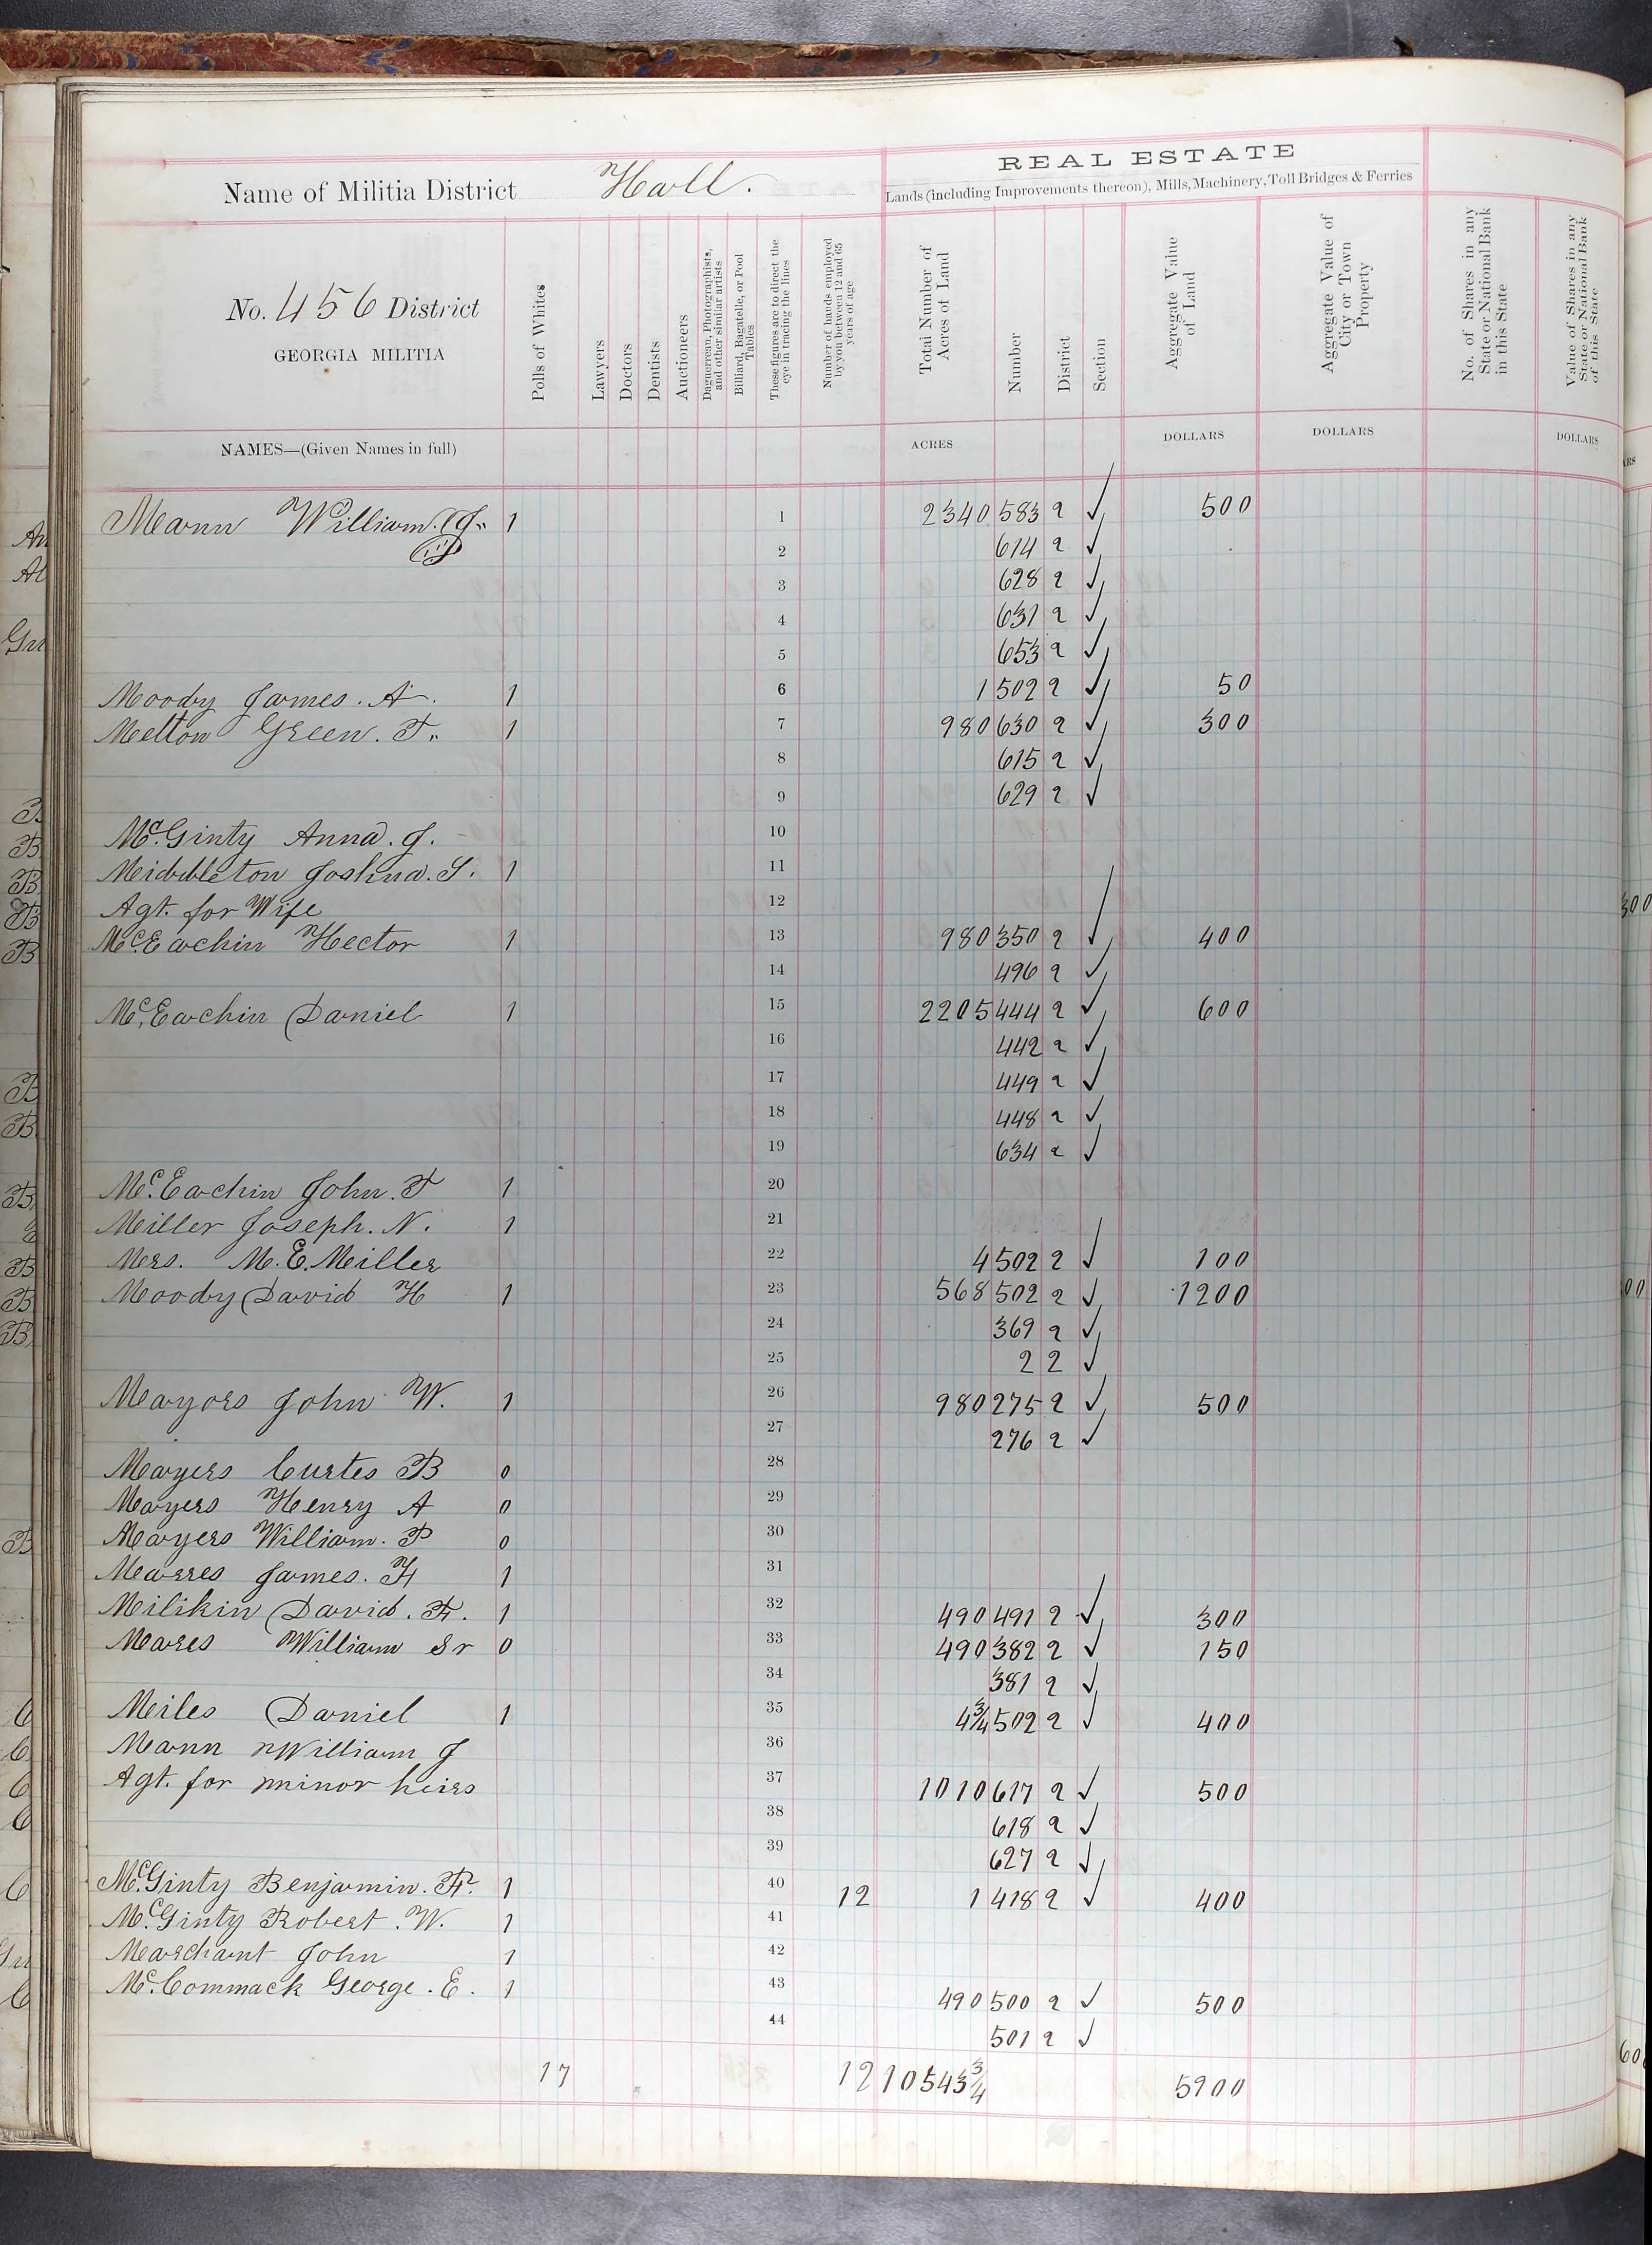 REAL ESTATE
Name of Militia District Hall.
Lands (including Improvements thereon), Mills, Machinery, Toll Bridges & Ferries
No. 456 District
GEORGIA MILITIA
Polls of Whites
Lawyers
Doctors
Dentists
Auctioneers
Daguerrean, Photographists, and other similar artists
Billiard, Bagatelle, or Pool Tables
These figures are to direct the eye in tracing the lines
Number of hands employed by you between 12 and 65 years of age
Total Number of Acres of Land
Number
District
Section
Aggregate Value of Land
Aggregate Value of City or Town Property
No. of Shares in any State or National Bank in this State
Value of Shares in any State or National Bank of this State
NAMES—(Given Names in full) ACRES DOLLARS DOLLARS DOLLARS
Mann William J. 1 1 2340 583 2 ✓ 500
2 614 2 ✓
3 628 2 ✓
4 631 2 ✓
5 653 2 ✓
Moody James. A. 1 6 1 502 2 ✓ 50
Melton Green. T. 1 7 980 630 2 ✓ 300
8 615 2 ✓
9 629 2 ✓
McGinty Anna. J. 10
Middleton Joshua. S. 1 11
Agt. for Wife 12
McEachin Hector 1 13 980 350 2 ✓ 400
14 496 2 ✓
McEachin Daniel 1 15 2205 444 2 ✓ 600
16 442 2 ✓
17 449 2 ✓
18 448 2 ✓
19 634 2 ✓
McEachin John. T 1 20
Miller Joseph. N. 1 21
Mrs. M. E. Miller 22 4 502 2 ✓ 100
Moody David H 1 23 568 502 2 ✓ 1200
24 369 2 ✓
25 2 2 ✓
Mayors John W. 1 26 980 275 2 ✓ 500
27 276 2 ✓
Mayers Curtes B 0 28
Mayers Henry A 0 29
Mayers William. P 0 30
Marres James. H 1 31
Milikin David. F. 1 32 490 491 2 ✓ 300
Mares William Sr 0 33 490 382 2 ✓ 150
34 381 2 ✓
Miles Daniel 1 35 4¾ 502 2 ✓ 400
Mann William J 36
Agt. for minor heirs 37 1010 617 2 ✓ 500
38 618 2 ✓
39 627 2 ✓
McGinty Benjamin. F. 1 40 12 1 418 2 ✓ 400
McGinty Robert. W. 1 41
Marchant John 1 42
McCommack George. E. 1 43 490 500 2 ✓ 500
44 501 2 ✓
17 12 10543¾ 5900